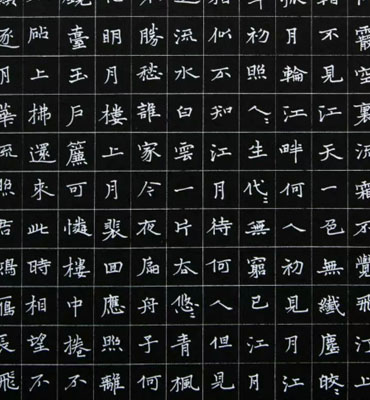 霰空裏流霜不覺飛汀上
不見江天一色無纖塵皎
月輪江畔何人初見月江
初照人〻生代〻無窮已江月
似不知江月待何人但見
流水白雲一片去悠〻青楓
勝愁誰家今夜扁舟子何
明月樓上月裴回應照離
臺玉戶簾可憐樓中捲不
砧上拂還來此時相望不
逐月華流照君鴻雁長飛